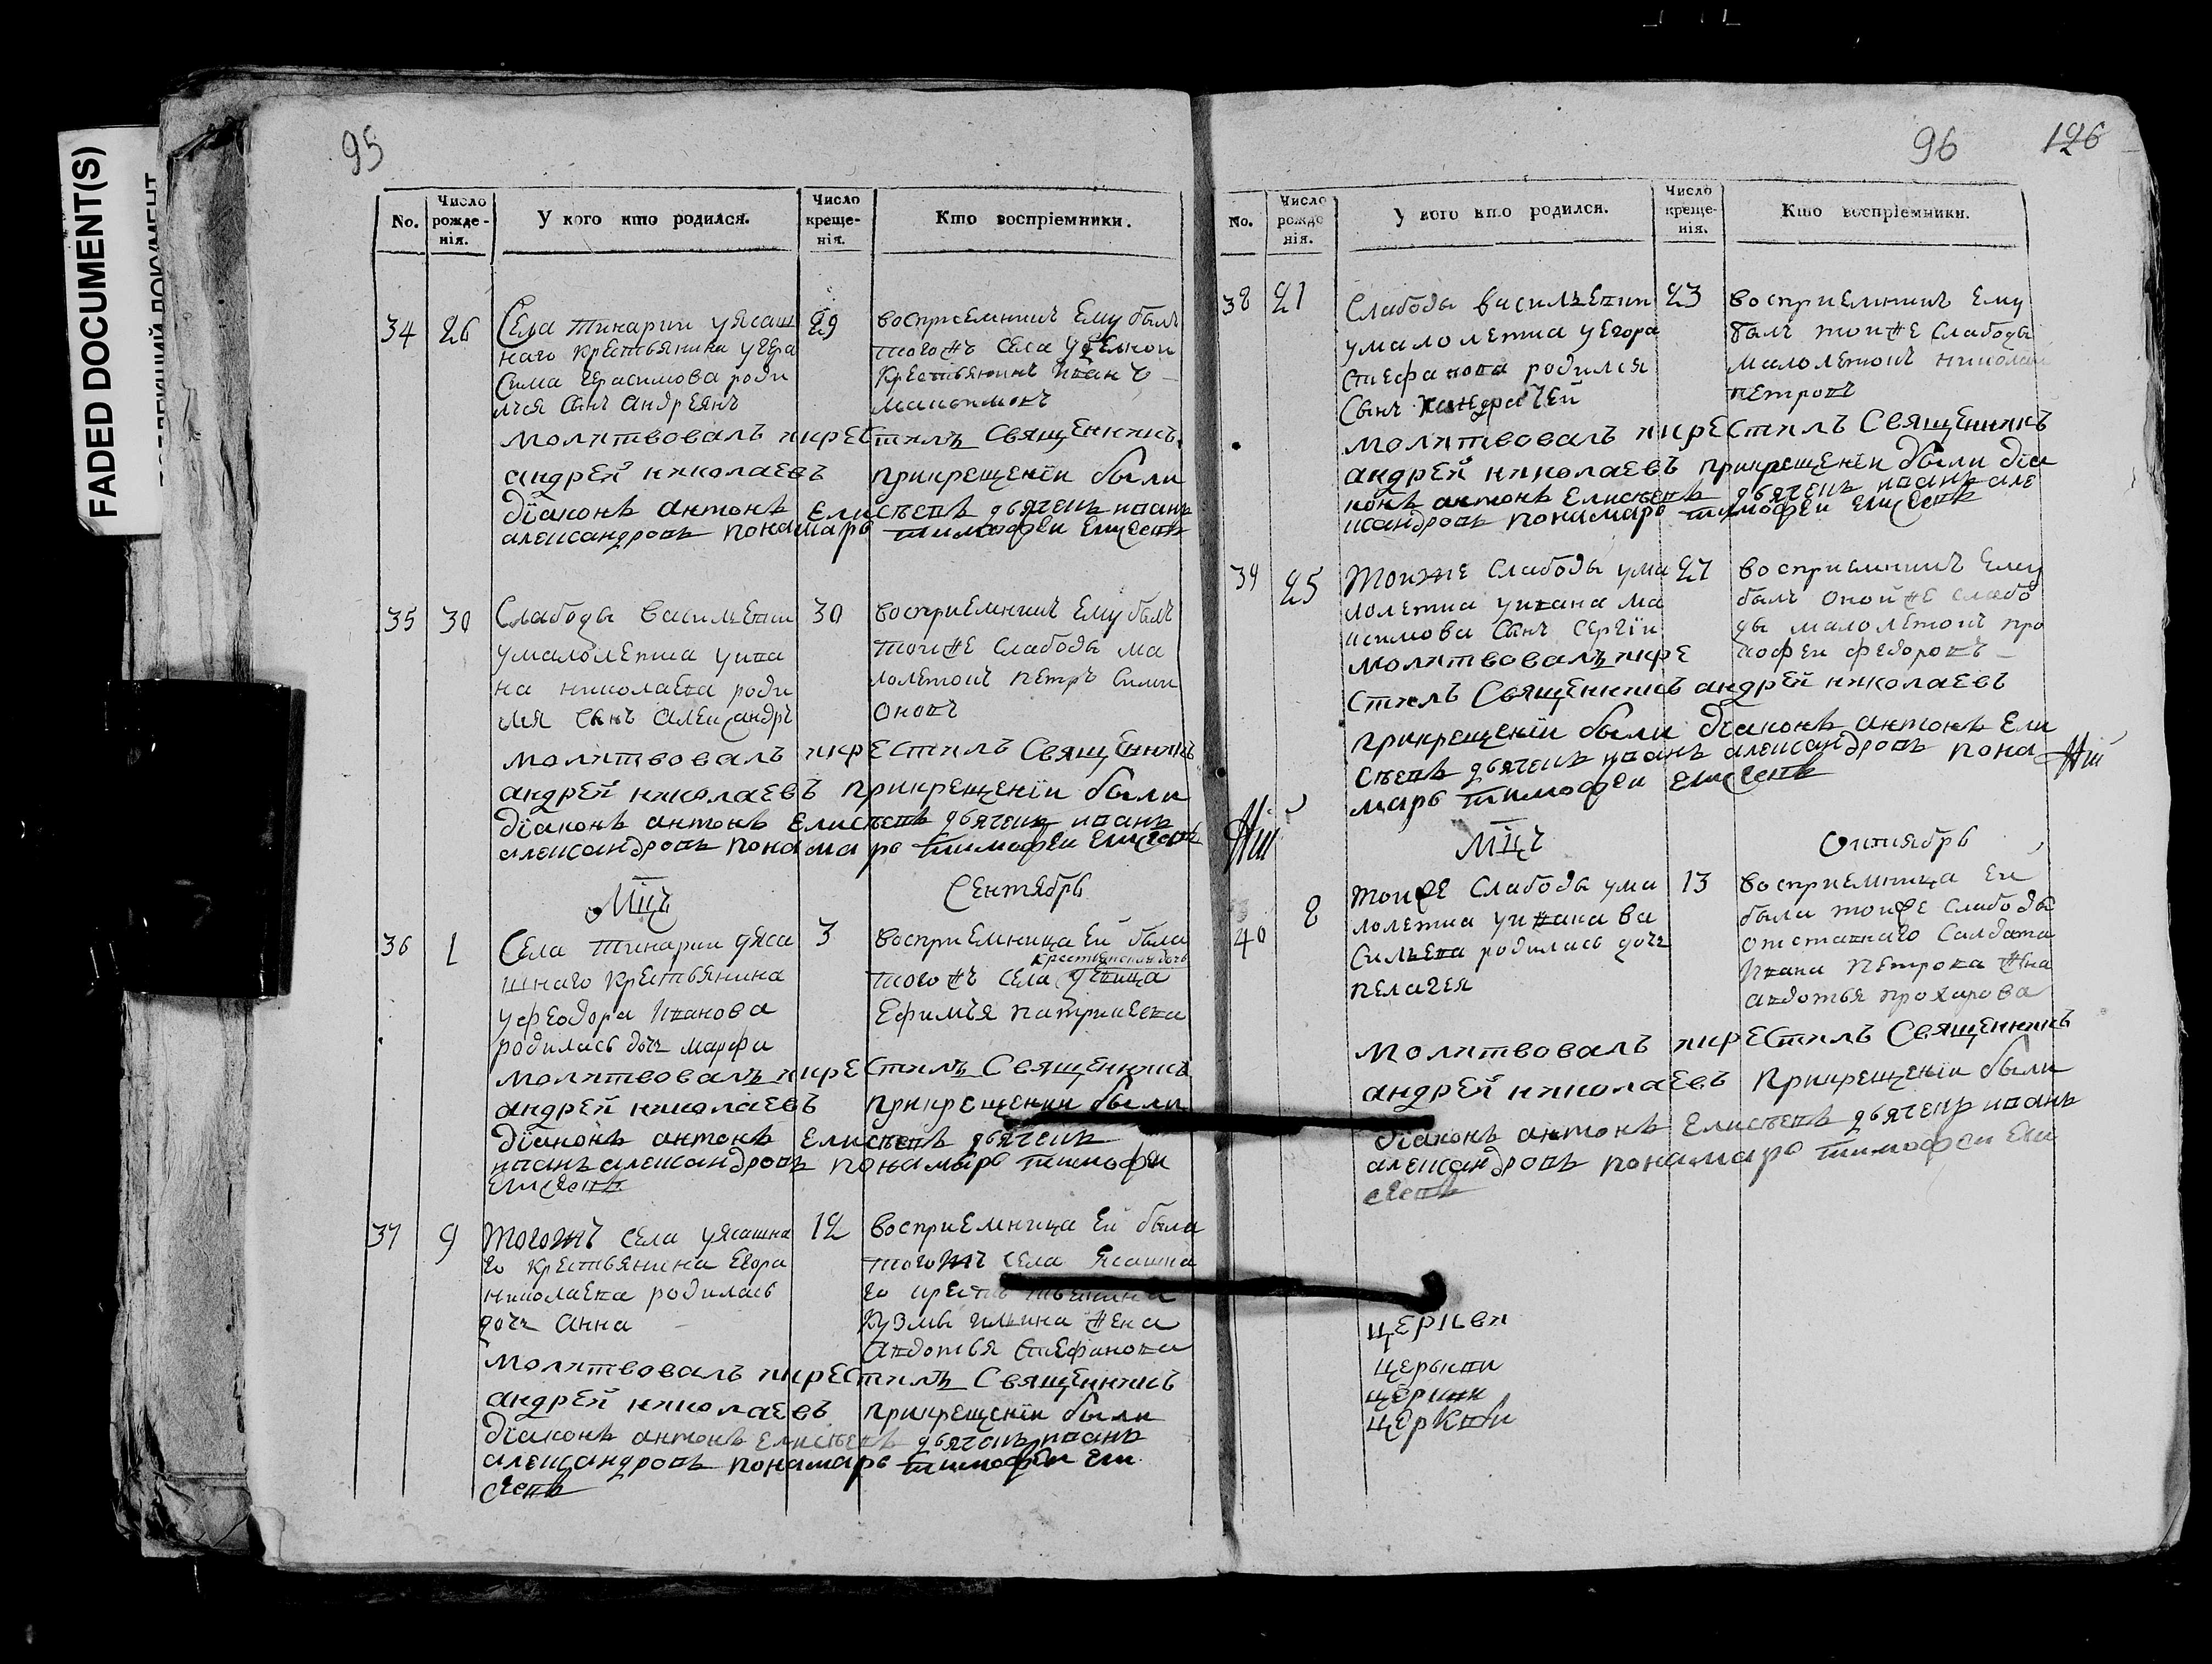 FADED DOCUMENT(S)
95
No.
Число рожде-нія.
У кого кто родился.
Число креще-нія.
Кто воспріемники.
34
26
29
Села тинарии уясаш
наго крестьянина угера
сима герасимова роди
лъся сынъ андреянъ
восприемникъ ему былъ
тогожъ села уделной
крестьянинъ иванъ
максимовъ
молитвовалъ икрестилъ священникъ
андрей николаевъ прикрещеніи были
діаконъ антонъ елисеевъ дьячекъ иванъ
александровъ понамарь тимофеи елисеевъ
35
30
30
Слабоды василъевки
умалолетка уива
на николаева роди
лся сынъ александръ
восприемникъ ему былъ
тоиже слабоды ма
лолетокъ петръ сими
оновъ
молитвовалъ икрестилъ священникъ
андрей николаевъ прикрещеніи были
діаконъ антонъ елисеевъ дьячекъ иванъ
александровъ понамарь тимофеи елисеевъ
Мцъ Сентябрь
36
1
3
Села тинарии уяса
шнаго крестьянина
уфеодора иванова
родилась дочь марфа
восприемница ей была
крестьянская дочь
тогожъ села девица
Ефимъя патрикеева
молитвовалъ икрестилъ священникъ
андрей николаевъ прикрещении были
діаконъ антонъ елисеевъ дьячекъ
иванъ александровъ понамарь тимофеи
елисеевъ
37
9
12
тогожъ села уясашна
го крестьянина егора
николаева родилась
дочь анна
восприемница ей была
тогожъ села ясашна
го крестьянина
кузмы илина жена
авдотья стефанова
молитвовалъ икрестилъ священникъ
андрей николаевъ прикрещеніи были
діаконъ антонъ елисеевъ дьячекъ иванъ
александровъ понамарь тимофеи ели
сеевъ
96
126
No.
Число рождо нія.
У кого кто родился.
Число креще-нія.
Кто воспріемники.
38
21
23
Слабоды василъевки
умалолетка уегора
стефанова родился
сынъ
восприемникъ ему
былъ тоиже слабоды
малолетокъ николаи
петровъ
молитвовалъ икрестилъ священникъ
андрей николаевъ прикрещеніи были діа
конъ антонъ елисеевъ дьячекъ иванъ але
ксандровъ понамарь тимофеи елисеевъ
39
25
27
тоиже слабоды ума
лолетка уивана ма
ксимова сынъ сергіи
восприемникъ ему
былъ оной же слабо
ды малолетокъ про
кофеи федоровъ
молитвовалъ икре
стилъ священникъ андрей николаевъ
прикрещеніи были діаконъ антонъ ели
сеевъ дьячекъ иванъ александровъ пона
марь тимофеи елисеевъ
Мцъ Октябрь
40
8
13
тоиже слабоды ума
лолетка уивана ва
силъева родилась дочь
пелагея
восприемница ей
была тоиже слабоды
отставнаго салдата
ивана петрова жена
авдотья прохарова
молитвовалъ икрестилъ священникъ
андрей николаевъ прикрещеніи были
діаконъ антонъ елисеевъ дьячекъ иванъ
александровъ понамарь тимофеи ели
сеевъ
церкви
церькви
церкви
церкви